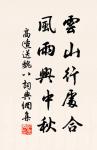 雲山行處合
風雨興中秋
高適送魏八詞典網集